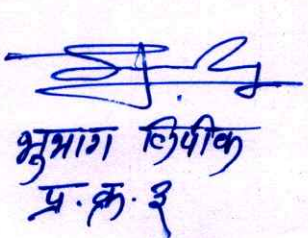 भुमाग लिपीक
प्र. क्र. ३